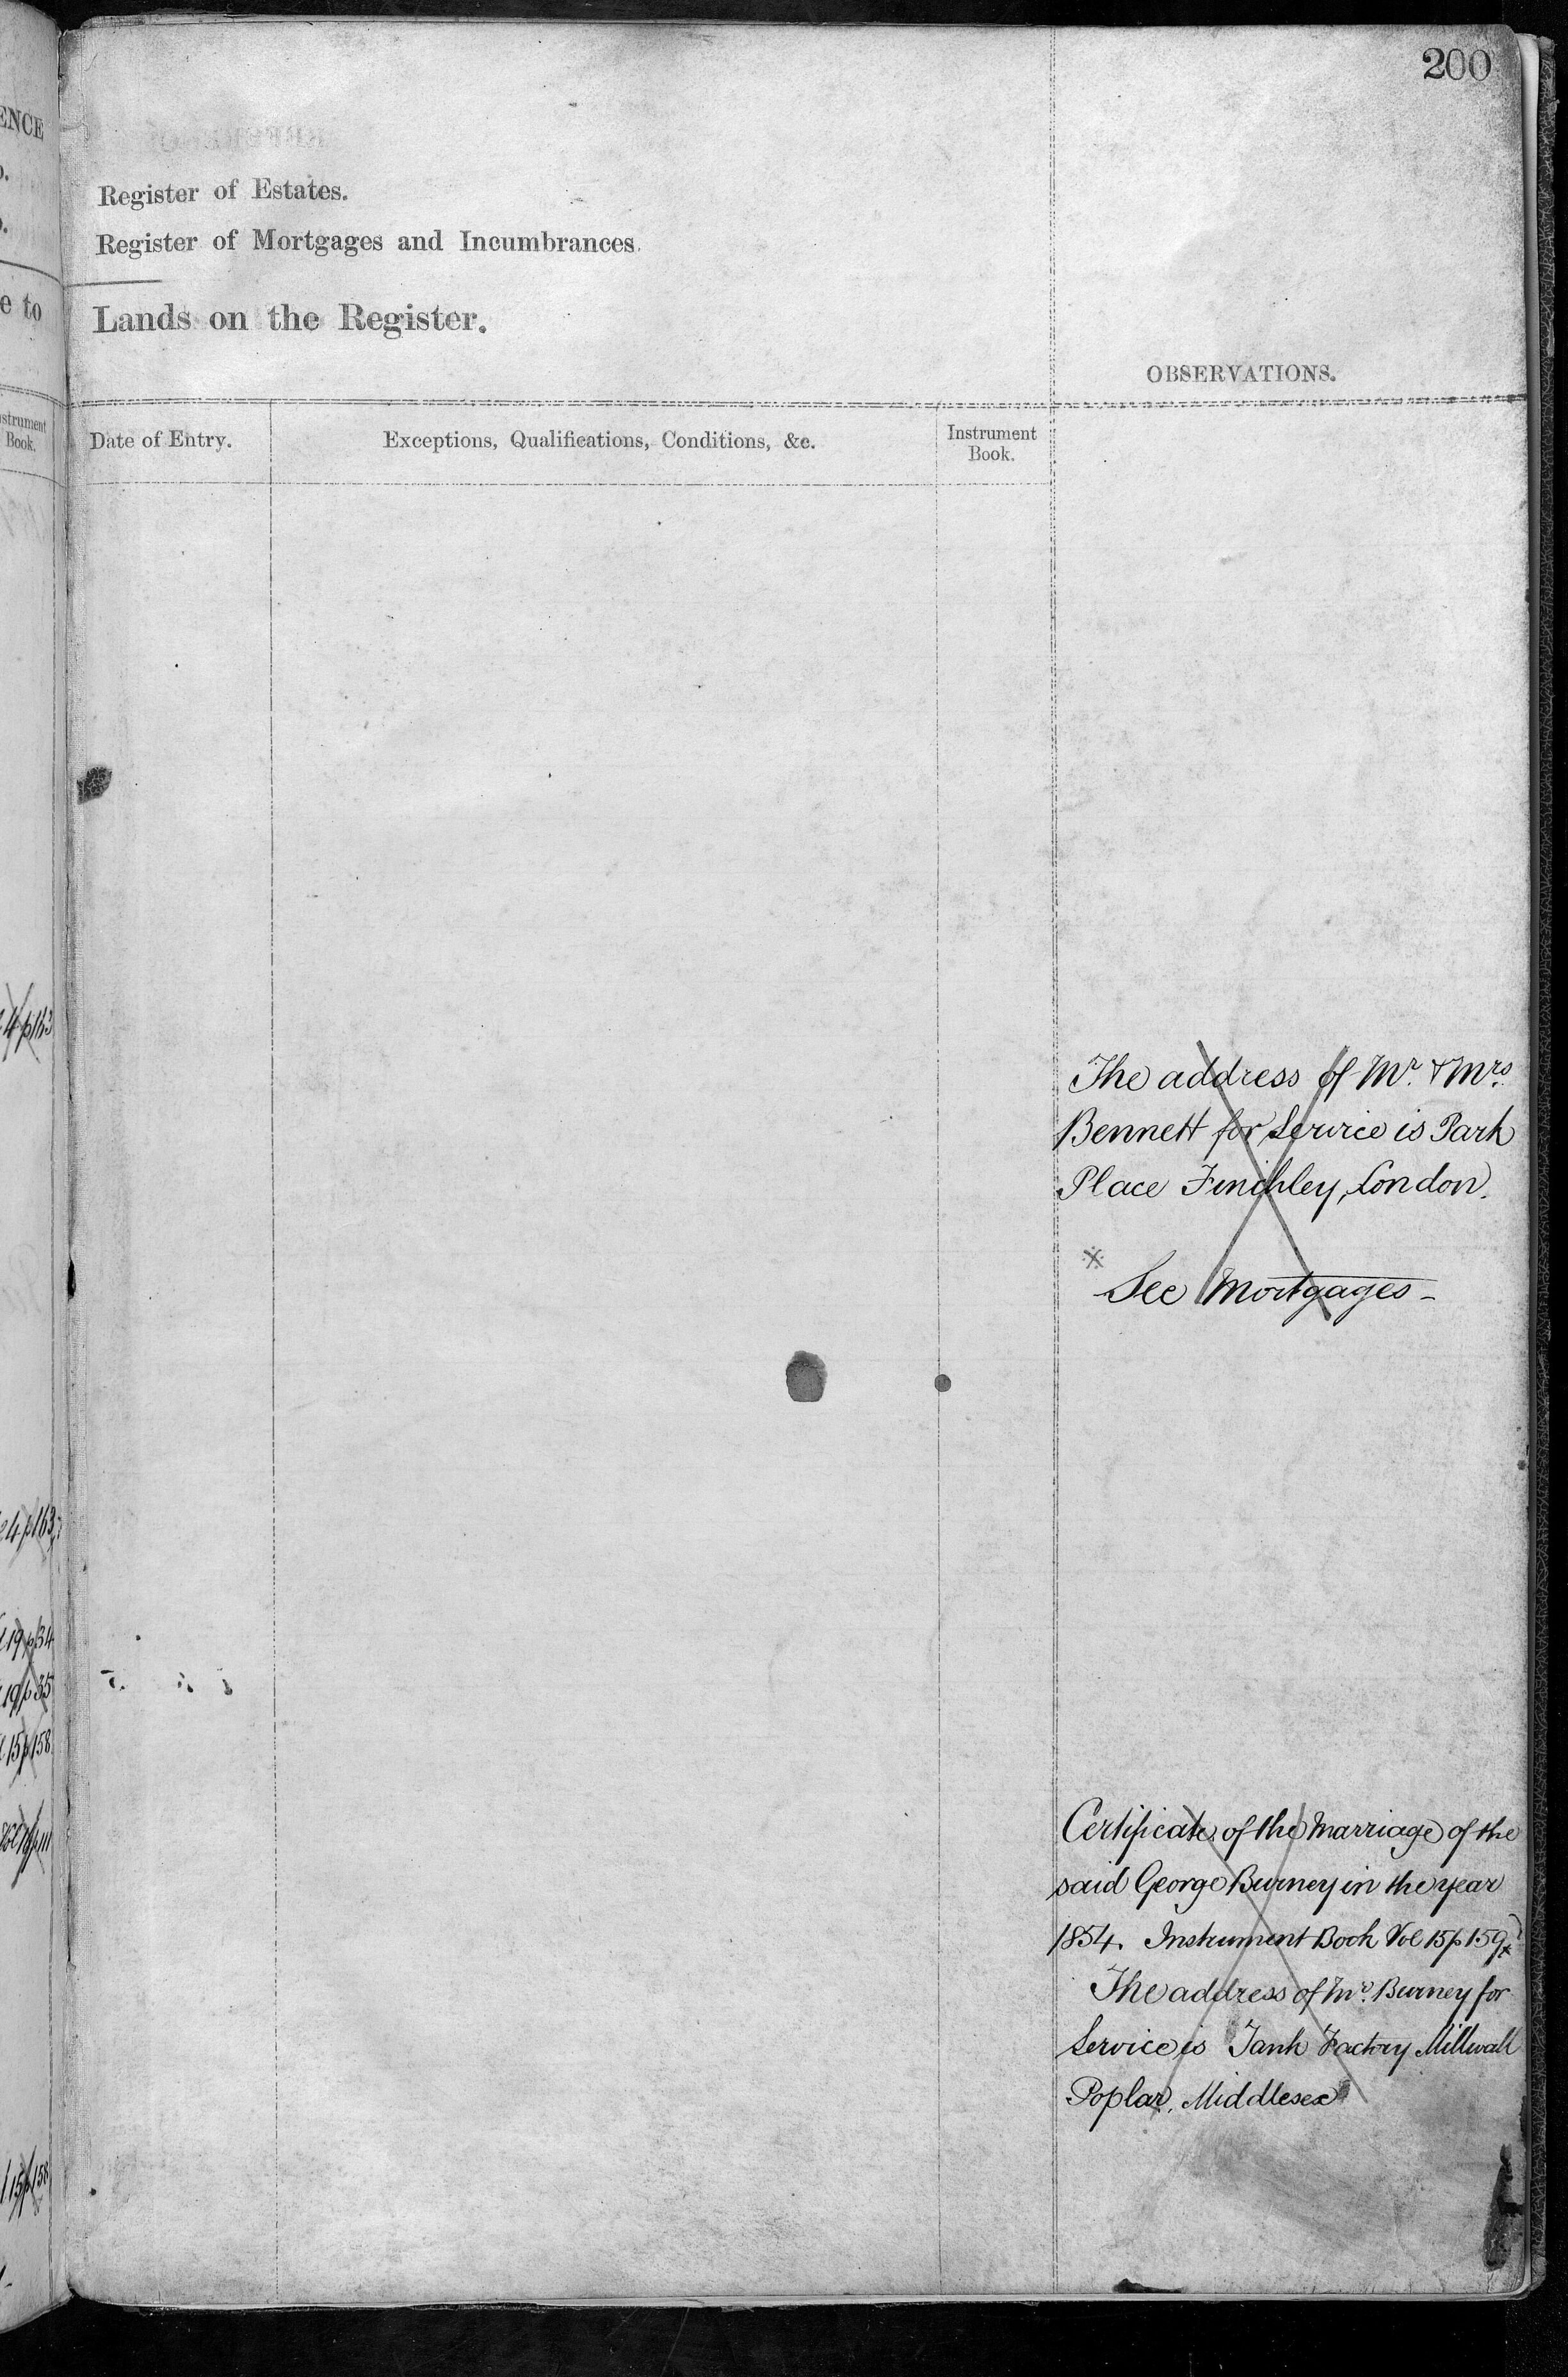 200
Register of Estates.
Register of Mortgages and Incumbrances.
Lands on the Register.
OBSERVATIONS.
Date of Entry.
Exceptions, Qualifications, Conditions, &c.
Instrument
Book.
The address of Mr. & Mrs.
Bennett for Service is Park
Place Finchley, London.
※
See Mortgages -
Certificate of the Marriage of the
said George Burney in the year
1854. Instrument Book Vol 15 p 159
The address of Mr. Burney for
Service is Tank Factory Millwall
Poplar, Middlesex
ENCE
e to
strument
Book.
4 p 163
4 p 163
19 p 34
19 p 35
15 p 158
15 p 158